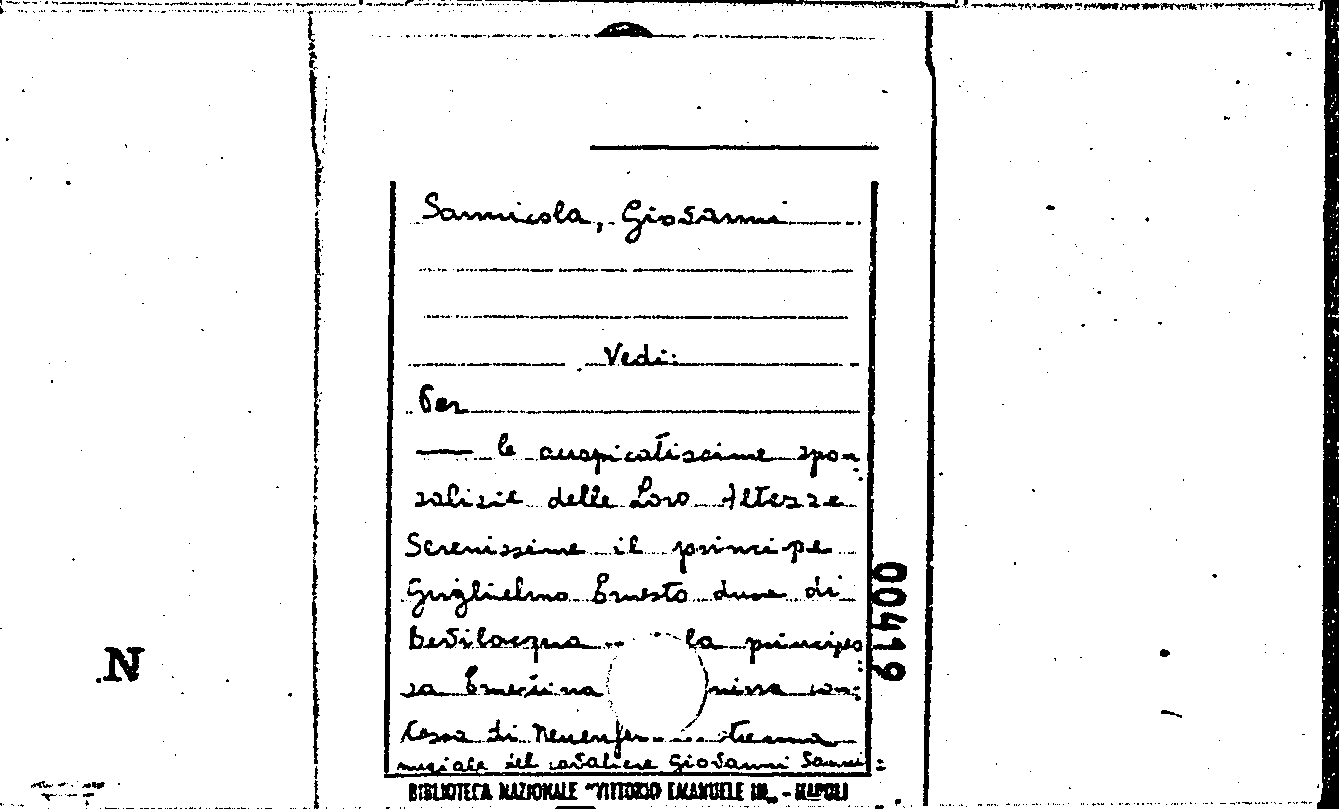 Sannicola, Giovanni
Vedi:
Per
— le auspicatissime spon-
salizie delle Loro Altezze
Serenissime il principe
Guglielmo Ernesto duca di
Bevilacqua ... la principes-
sa
di
musicale del cavaliere Giovanni Sanni-
BIBLIOTECA NAZIONALE "VITTORIO EMANUELE III„ - NAPOLI
00419
N